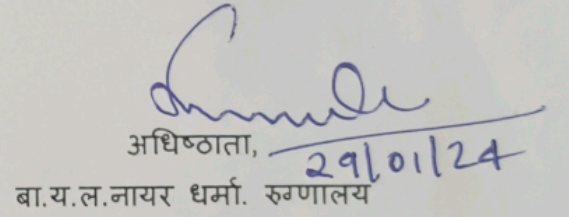 अधिष्ठाता,
29/01/24
बा.य.ल.नायर धर्मा. रुग्णालय